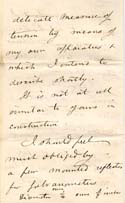 delicate measure of
tension by means of
my own apparatus &
which I intend to
describe shortly.
It is not at all
similar to yours in
construction
I should feel
much obliged by
a few mounted reflectors
for galvanometers